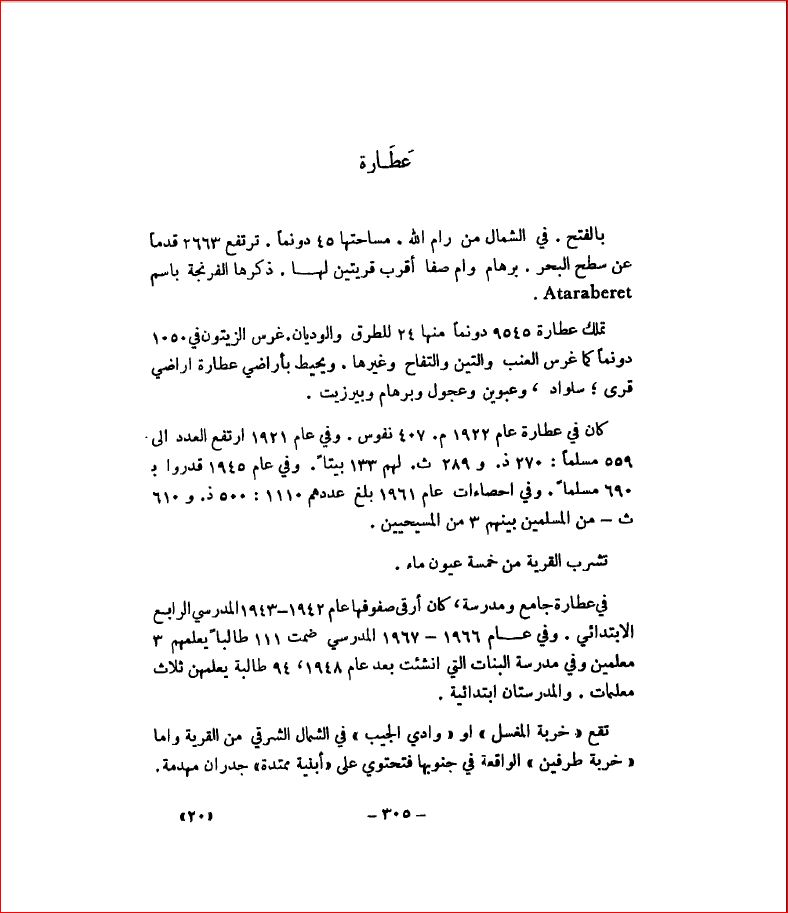 عَطَّارة
بالفتح . في الشمال من رام الله . مساحتها ٤٥ دونماً . ترتفع ٢٦٦٣ قدماً
عن سطح البحر . برهام وام صفا أقرب قريتين لهـــا . ذكرها الفرنجة باسم
Ataraberet .
تملك عطارة ٩٥٤٥ دونماً منها ٢٤ للطرق والوديان.غرس الزيتون في ١٠٥٠
دونماً كما غرس العنب والتين والتفاح وغيرها . ويحيط بأراضي عطارة اراضي
قرى ؛ سلواد ، وعبوين وعجول وبرهام وبيرزيت .
كان في عطارة عام ١٩٢٢ م. ٤٠٧ نفوس . وفي عام ١٩٢١ ارتفع العدد الى
٥٥٩ مسلماً : ٢٧٠ ذ. و ٢٨٩ ث. لهم ١٣٣ بيتاً . وفي عام ١٩٤٥ قدروا بـ
٦٩٠ مسلماً . وفي احصاءات عام ١٩٦١ بلغ عددهم ١١١٠ : ٥٠٠ ذ. و ٦١٠
ث – من المسلمين بينهم ٣ من المسيحيين .
تشرب القرية من خمسة عيون ماء .
في عطارة جامع ومدرسة، كان أرقى صفوفها عام ١٩٤٢–١٩٤٣ المدرسي الرابع
الابتدائي . وفي عـــام ١٩٦٦ – ١٩٦٧ المدرسي ضمت ١١١ طالباً يعلمهم ٣
معلمين وفي مدرسة البنات التي انشئت بعد عام ١٩٤٨، ٩٤ طالبة يعلمهن ثلاث
معلمات . والمدرستان ابتدائية .
تقع « خربة المغسل » او « وادي الجيب » في الشمال الشرقي من القرية واما
« خربة طرفين » الواقعة في جنوبها فتحتوي على «أبنية ممتدة» جدران مهدمة.
– ٣٠٥ –
«٢٠»